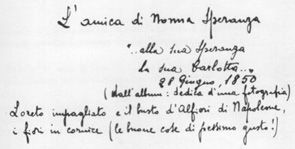 L'amica di Nonna Speranza
"..alla sua Speranza
la sua Carlotta...
28 Giugno, 1850
(dall'album: dedica d'una fotografia)
Loreto impagliato e il busto d'Alfieri di Napoleone,
i fiori in cornice (le buone cose di pessimo gusto!)